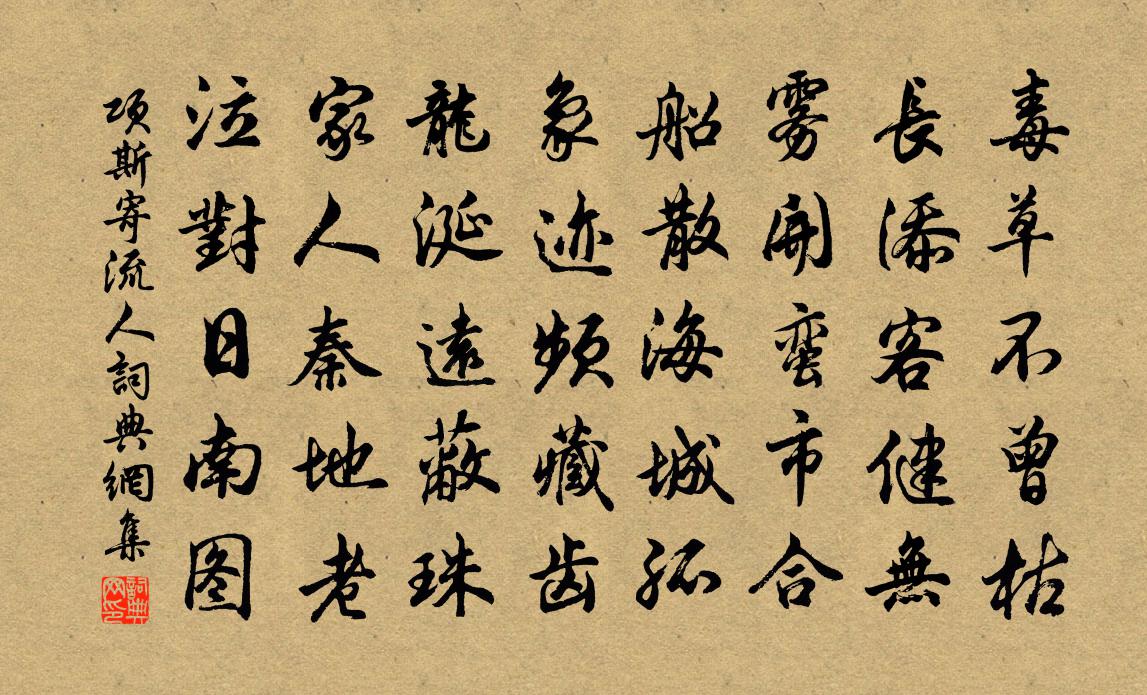 毒草不曾枯
長添客健無
雾開蛮市合
船散海城孤
象迹频藏齿
龍涎遠蔽珠
家人秦地老
泣對日南图
项斯寄流人詞典網集
詞典网印